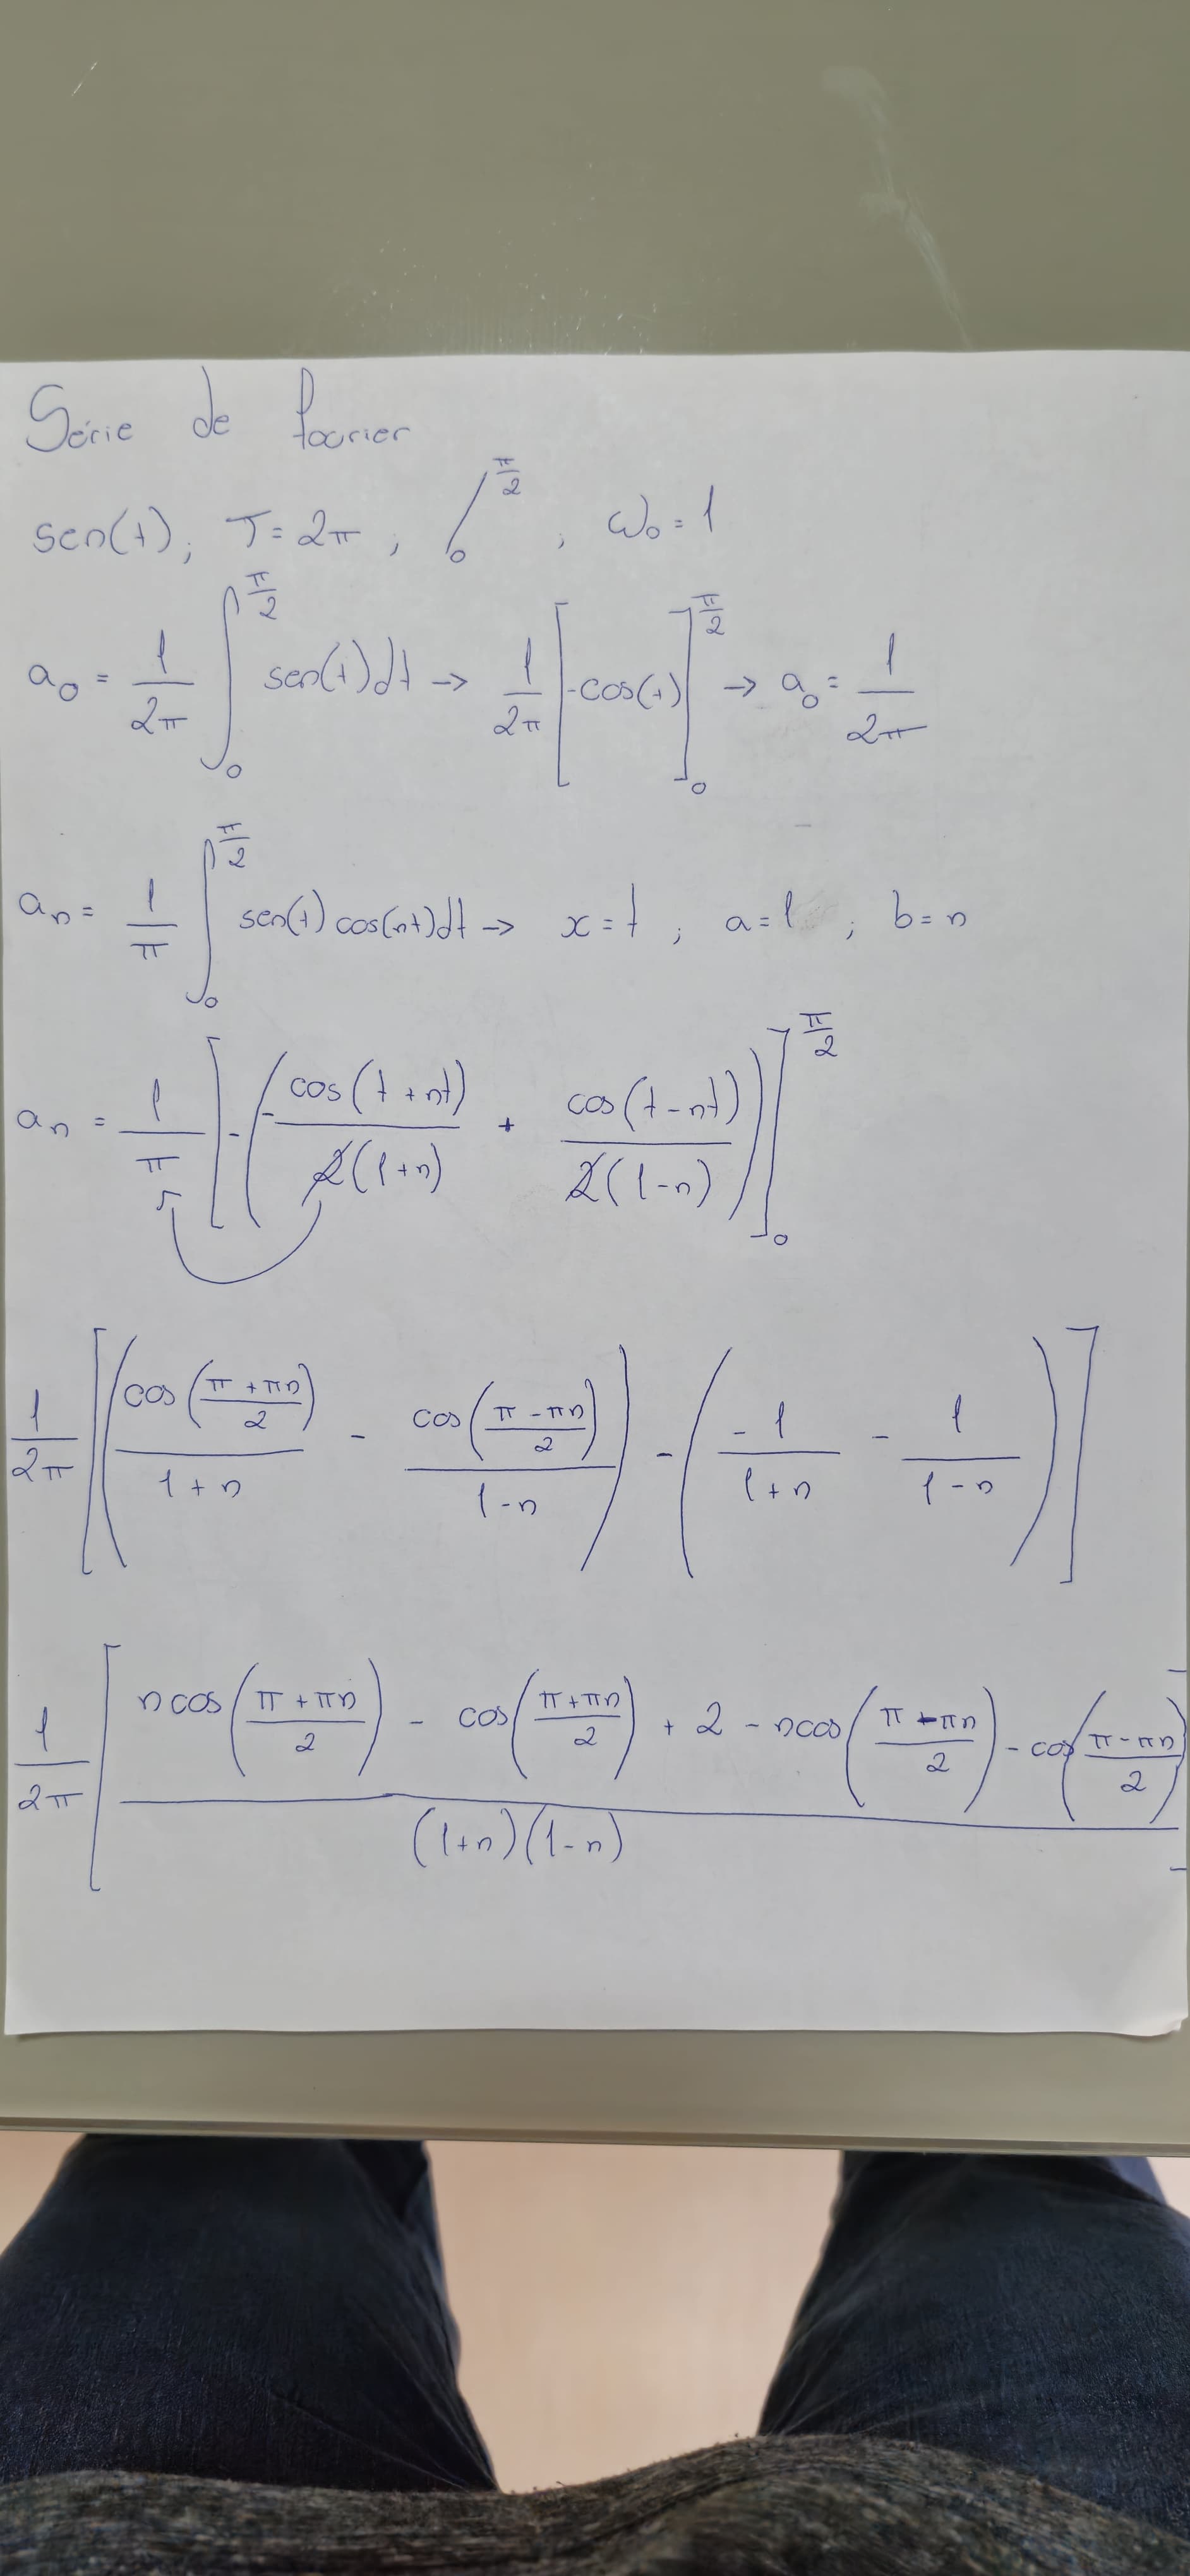 Série de fourier
sen(t); T=2π, ∫₀^(π/2), ω₀=1
a₀ = 1/2π ∫₀^(π/2) sen(t)dt → 1/2π [-cos(t)]₀^(π/2) → a₀ = 1/2π
aₙ = 1/π ∫₀^(π/2) sen(t)cos(nt)dt → x=t; a=1; b=n
aₙ = 1/π [-(-cos(t+nt)/2(1+n) + cos(t-nt)/2(1-n))]₀^(π/2)
1/2π [(cos((π+πn)/2)/(1+n) - cos((π-πn)/2)/(1-n)) - (-1/(1+n) - 1/(1-n))]
1/2π [(n cos((π+πn)/2) - cos((π+πn)/2) + 2 - n cos((π-πn)/2) - cos((π-πn)/2))/((1+n)(1-n))]